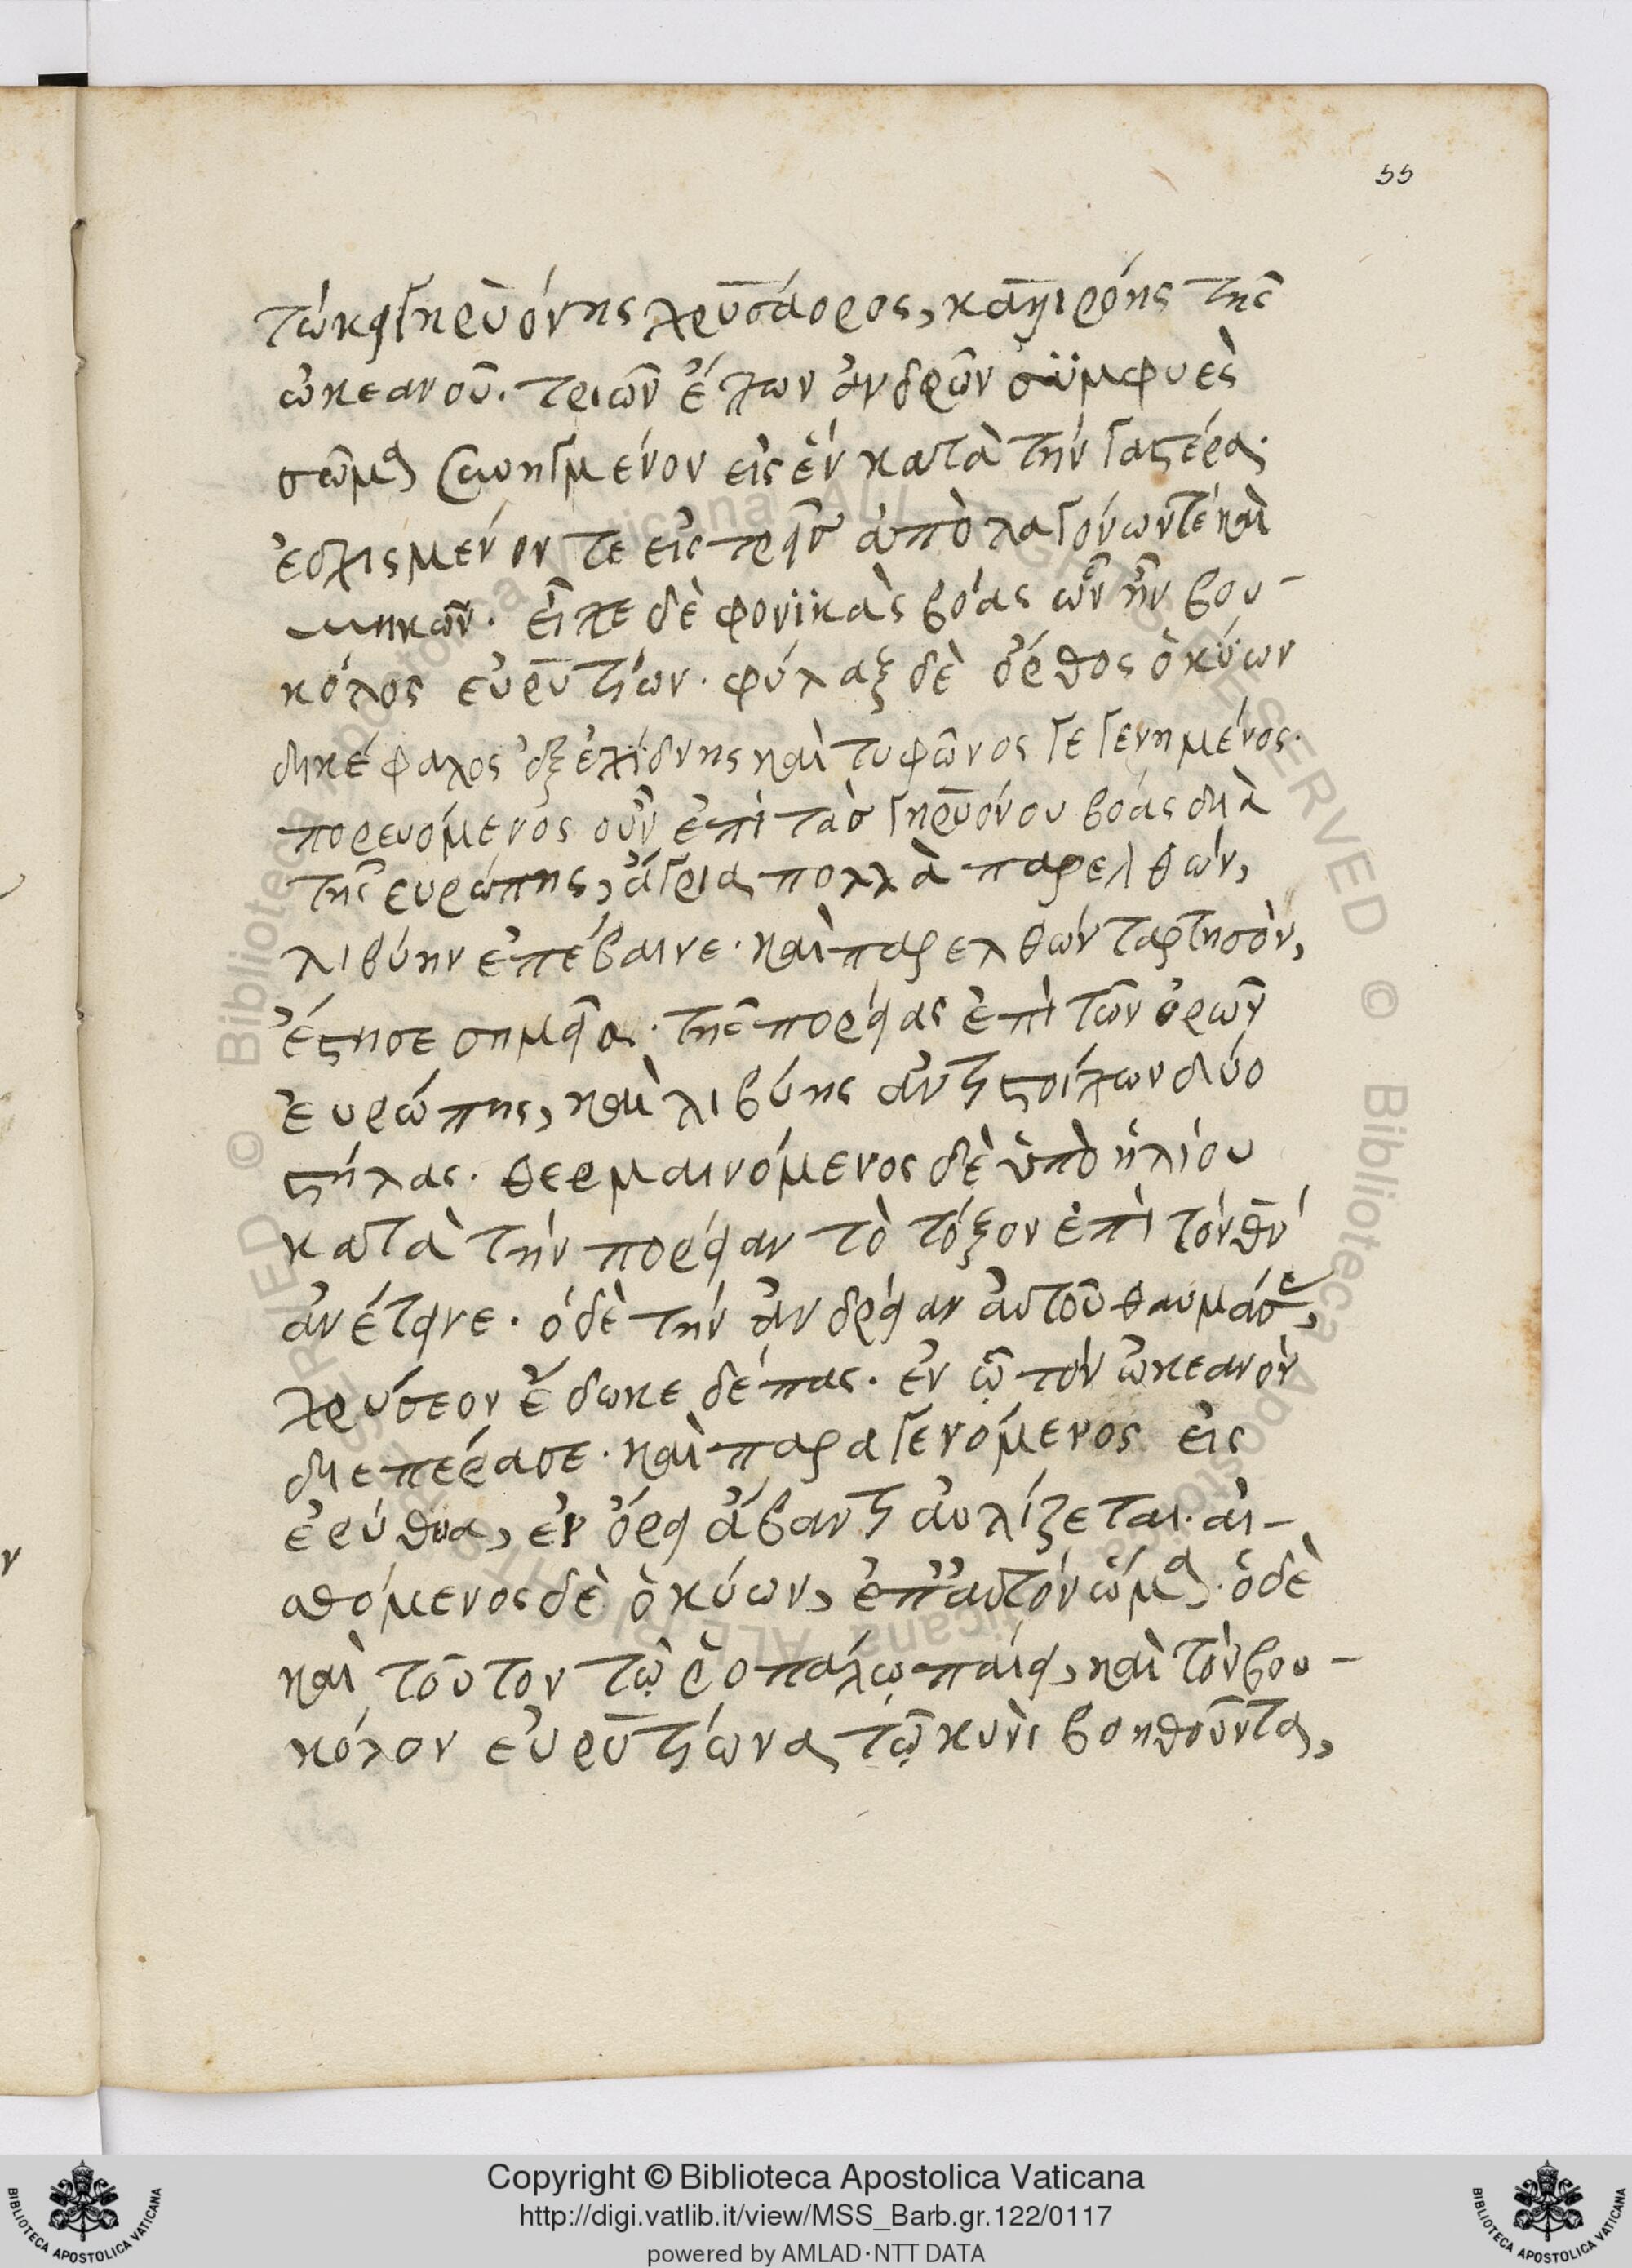 55
τώκει γηρυόνης χρυσάορος, καλλιρόης τῆς
ὠκεανοῦ. τριῶν ἔχων ἀνδρῶν συμφυὲς
σῶμα συνηγμένον εἰς ἓν κατὰ τὴν γαστέρα·
ἐσχισμένον τε εἰς τρεῖς ἀπὸ λαγόνων τε καὶ
μηρῶν. εἶχε δὲ φοινικὰς βόας ὧν ἦν βου-
κόλος εὐρυτίων. φύλαξ δὲ ὄρθος ὁ κύων
δικέφαλος ἐξ ἐχίδνης καὶ τυφῶνος γεγενημένος.
πορευόμενος οὖν ἐπὶ τὰς γηρυόνου βόας διὰ
τῆς ευρώπης, ἄγρια πολλὰ παρελθών,
λιβύην ἐπέβαινε. καὶ παρελθὼν ταρτησὸν,
ἔστησε σημεῖα τῆς πορείας ἐπὶ τῶν ὁρῶν
ἐυρώπης, καὶ λιβύης ἀντιστοίχων δύο
στήλας. θερμαινόμενος δὲ ὑπὸ ἡλίου
κατὰ τὴν πορείαν τὸ τόξον ἐπὶ τὸν θν
ἀνέτεινε. ὁ δὲ τὴν ἀνδρείαν αὐτοῦ θαυμάσας,
χρύσεον ἔδωκε δέπας. ἐν ᾧ τὸν ὠκεανὸν
διεπέρασε. καὶ παραγενόμενος εἰς
ἐρύθεια, ἐν ὄρει ἄβαντι ἀυλίζεται. ἀι-
σθόμενος δὲ ὁ κύων, ἐπ' αὐτὸν ὥρμα. ὁ δὲ
καὶ τοῦτον τῷ ῥοπάλῳ παίει, καὶ τὸν βου-
κόλον εὐρυτίωνα τῷ κυνὶ βοηθοῦντα,
Copyright © Biblioteca Apostolica Vaticana
http://digi.vatlib.it/view/MSS_Barb.gr.122/0117
powered by AMLAD·NTT DATA